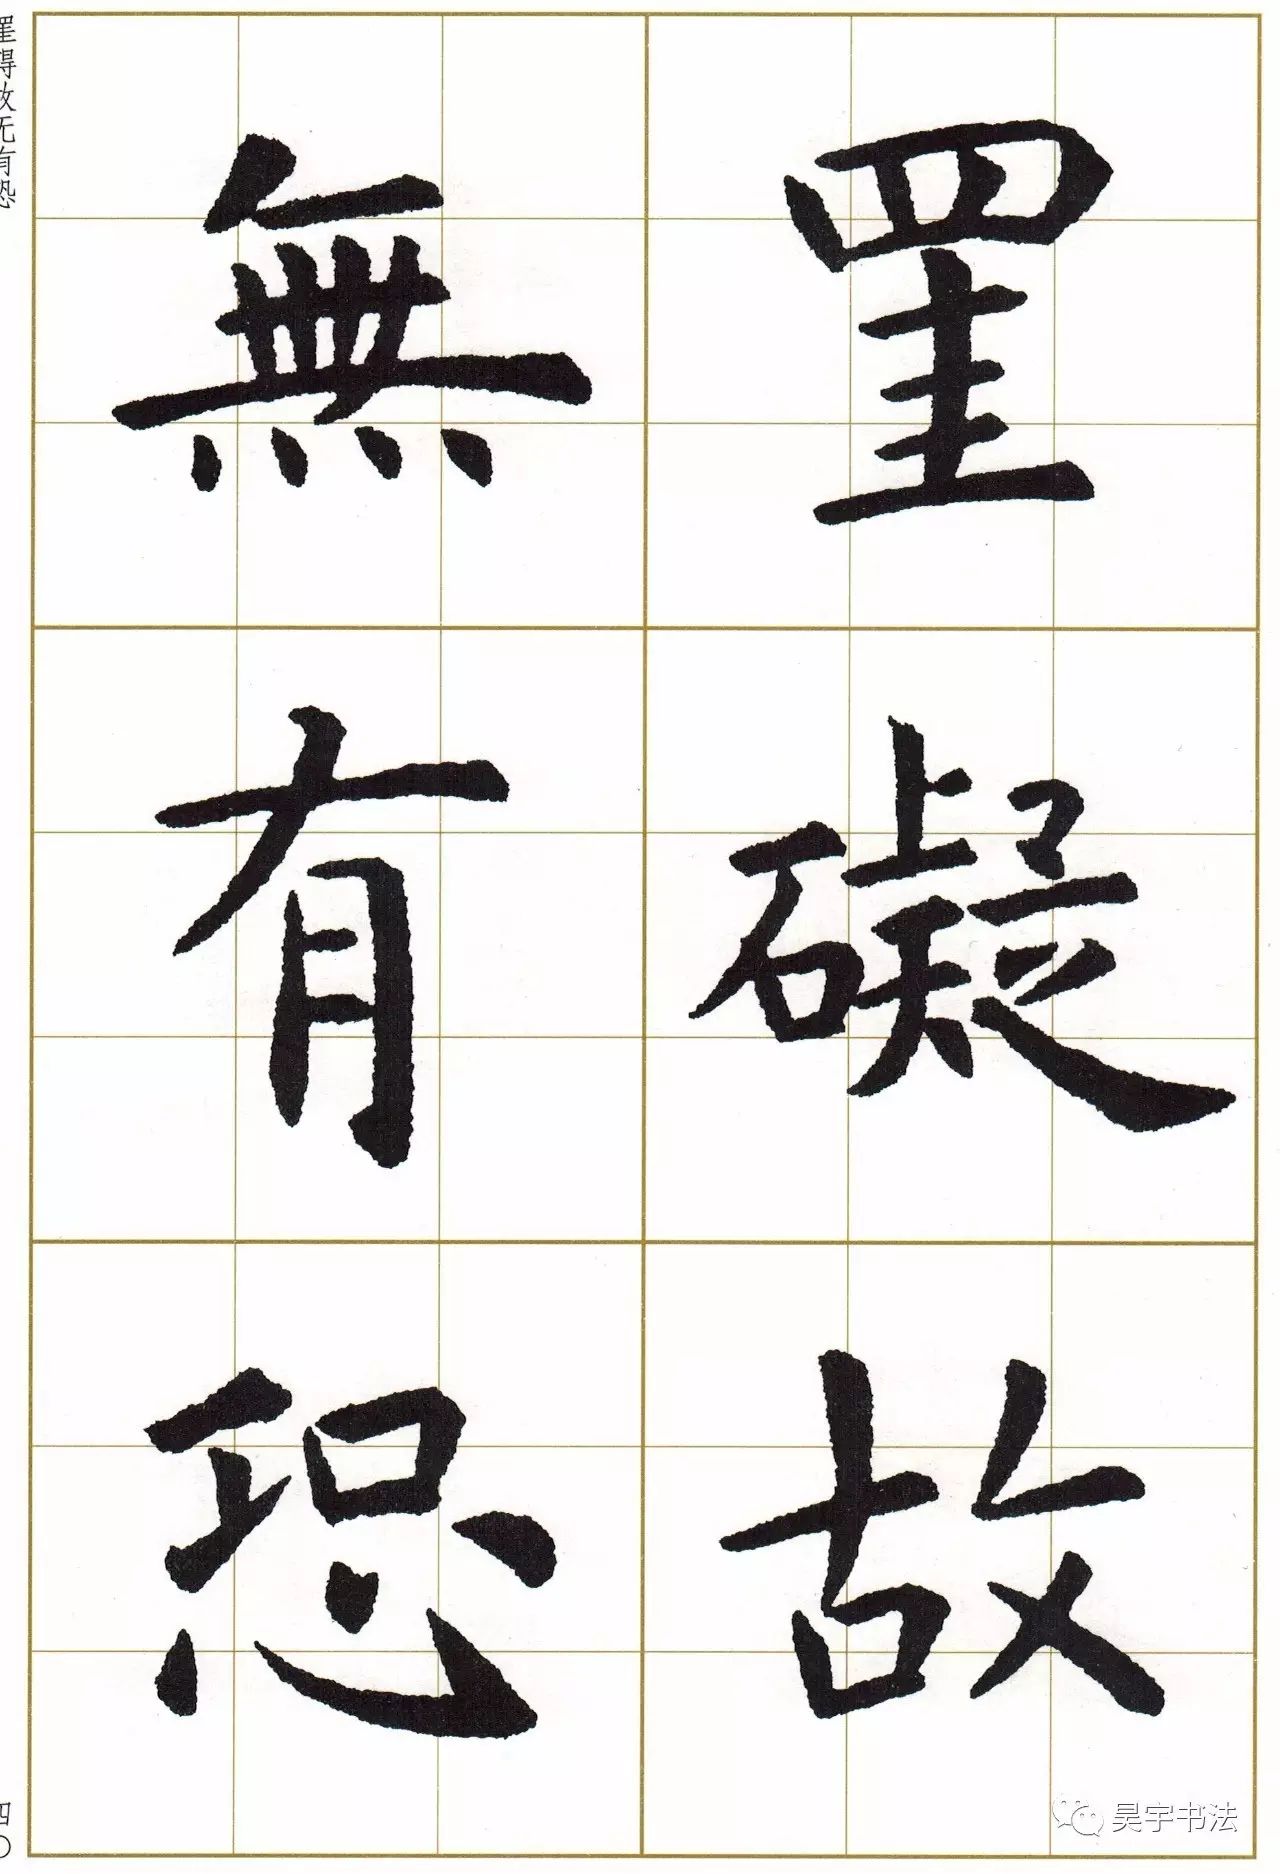 罣礙故
無有恐
罣得故无有恐
四〇
昊宇书法